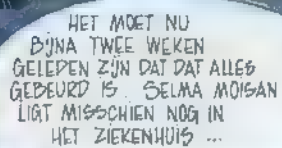 HET MOET NU
BIJNA TWEE WEKEN
GELEDEN ZIJN DAT DAT ALLES
GEBEURD IS. SELMA MOISAN
LIGT MISSCHIEN NOG IN
HET ZIEKENHUIS ...